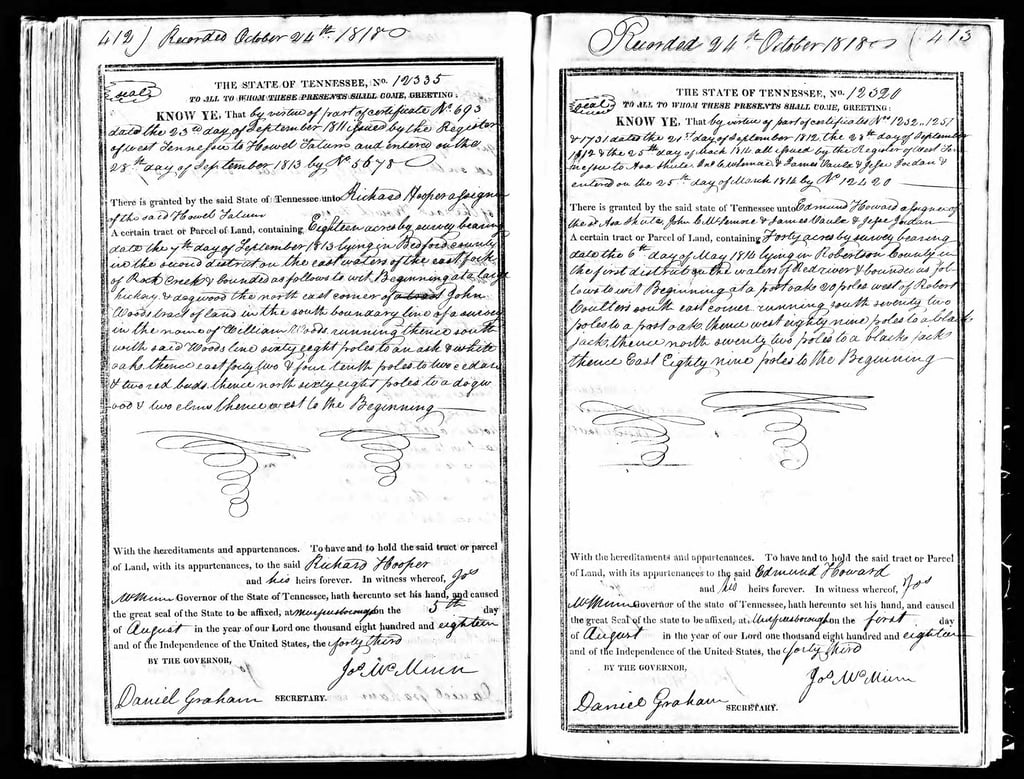 412) Recorded October 24th 1818
THE STATE OF TENNESSEE, No. 12335
Seal
TO ALL TO WHOM THESE PRESENTS SHALL COME, GREETING:
KNOW YE, That by virtue of part of certificate No 693
dated the 23rd day of September 1811 issued by the Register
of west Tennessee to Howell Tatum and entered on the
28th day of September 1813 by No 5678
There is granted by the said State of Tennessee unto Richard Hooper assignee
of the said Howell Tatum
A certain tract or Parcel of Land, containing Eighteen acres by survey bearing
date the 7th day of September 1813 lying in Bedford county
in the second district on the east waters of the east fork
of Rock Creek & bounded as follows to wit Beginning at a large
hickory & dogwood the north east corner of John
Woods tract of land in the south boundary line of a survey
in the name of William Woods running thence south
with said Woods line sixty eight poles to an ash & white
oak thence east forty two & four tenth poles to two cedars
& two red buds thence north sixty eight poles to a dogw
ood & two elms thence west to the Beginning
With the hereditaments and appurtenances. To have and to hold the said tract or parcel
of Land, with its appurtenances, to the said Richard Hooper
and his heirs forever. In witness whereof, Jos
McMinn Governor of the State of Tennessee, hath hereunto set his hand, and caused
the great seal of the State to be affixed, at Murfreesborough on the 5th day
of August in the year of our Lord one thousand eight hundred and eighteen
and of the Independence of the United States, the forty third
BY THE GOVERNOR,
Jos McMinn
Daniel Graham SECRETARY.
Recorded 24th October 1818 (413
THE STATE OF TENNESSEE, No. 12320
Seal
TO ALL TO WHOM THESE PRESENTS SHALL COME, GREETING:
KNOW YE, That by virtue of part of certificates Nos 1232, 1251
& 1731 dated the 21st day of September 1812 the 28th day of September
1812 & the 25th day of March 1814 all issued by the Register of West Te
nnessee to Asa Shute, Jno C McLemore & James Vaulx & Jesse Jordan &
entered on the 25th day of March 1814 by No 12420
There is granted by the said State of Tennessee unto Edmund Howard assignee of
the sd Asa Shute John C McLemore & James Vaulx & Jesse Jordan
A certain tract or Parcel of Land, containing Forty acres by survey bearing
date the 6th day of May 1814 lying in Robertson County in
the first district on the waters of Red river & bounded as fol
lows to wit Beginning at a post oak 20 poles west of Robert
Coulters south east corner running south seventy two
poles to a post oak thence west eighty nine poles to a black
jack thence north seventy two poles to a black jack
thence East Eighty nine poles to the Beginning
With the hereditaments and appurtenances. To have and to hold the said tract or Parcel
of Land, with its appurtenances to the said Edmund Howard
and his heirs forever. In witness whereof, Jos
McMinn Governor of the state of Tennessee, hath hereunto set his hand, and caused
the great Seal of the state to be affixed, at Murfreesborough on the first day
of August in the year of our Lord one thousand eight hundred and eighteen
and of the Independence of the United States, the forty third
BY THE GOVERNOR,
Jos McMinn
Daniel Graham SECRETARY.